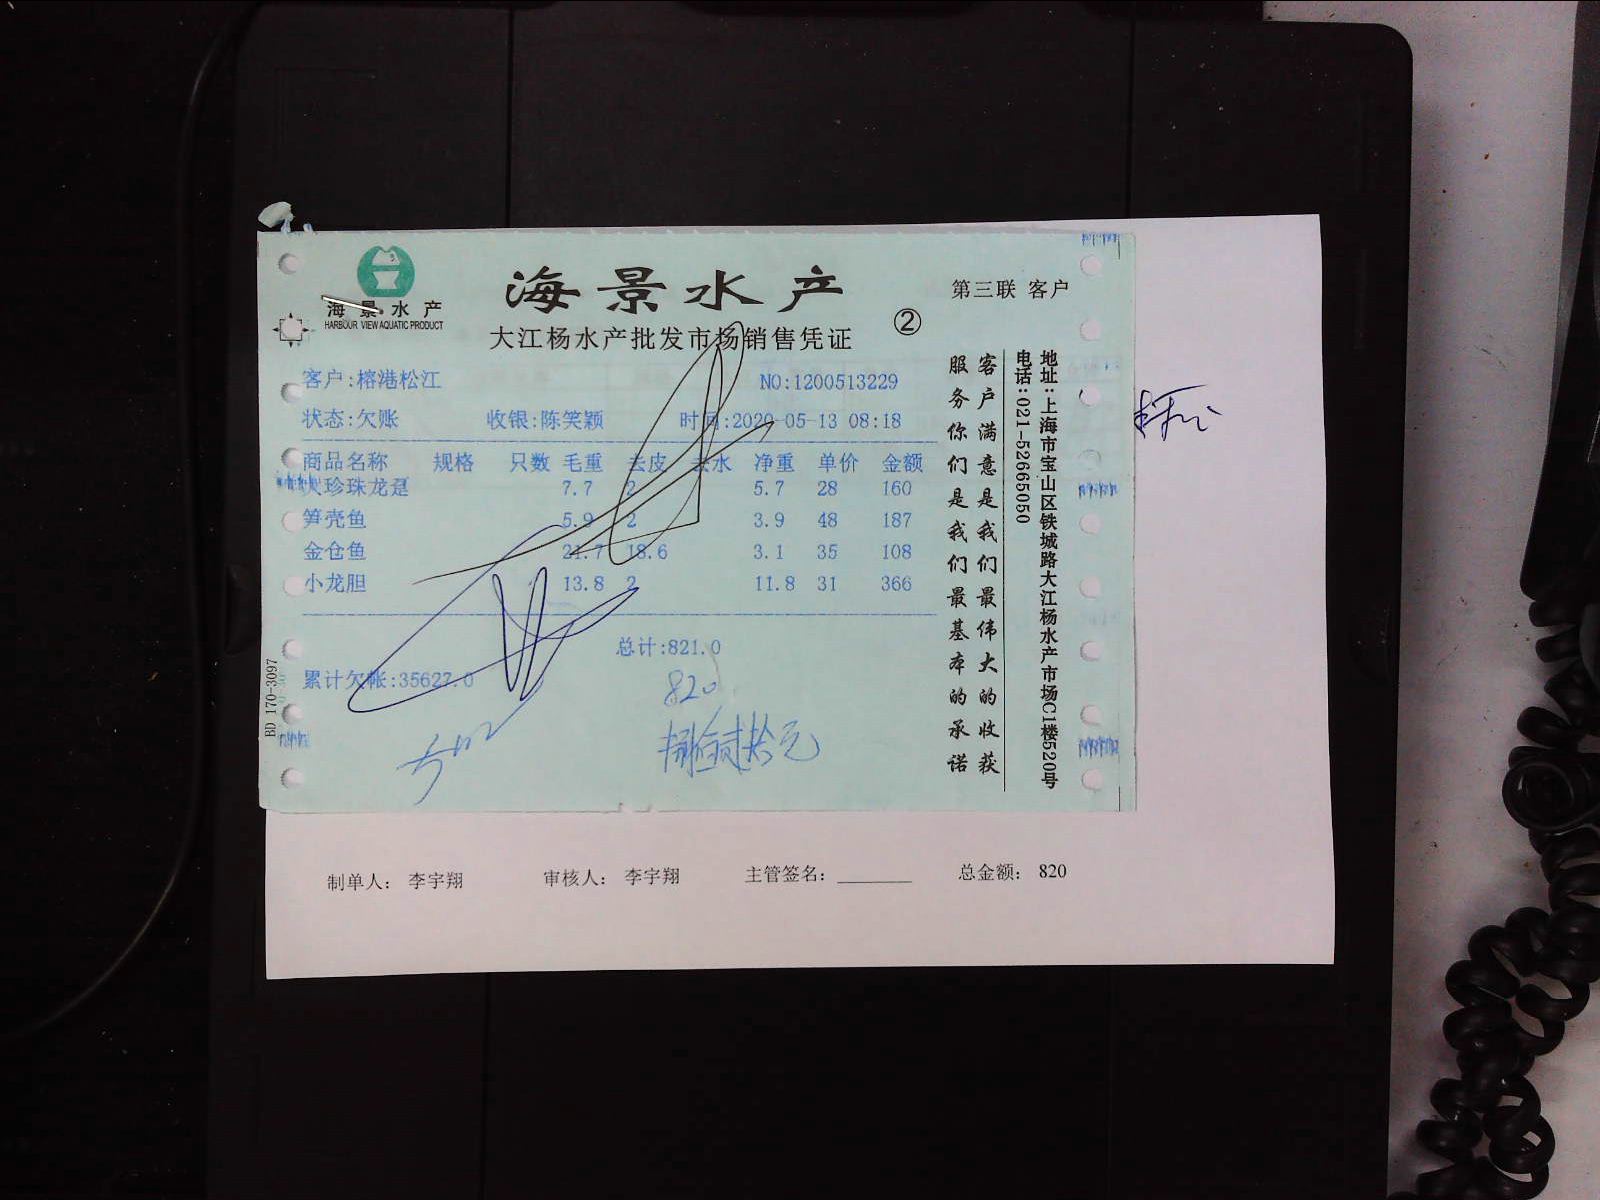 海景水产
HARBOUR VIEW AQUATIC PRODUCT
海景水产
大江杨水产批发市场销售凭证
②
第三联 客户
客户:榕港松江
NO:1200513229
状态:欠账 收银:陈笑颖 时间:2020-05-13 08:18
商品名称 规格 只数 毛重 去皮 去水 净重 单价 金额
大珍珠龙趸 7.7 2 5.7 28 160
笋壳鱼 5.9 2 3.9 48 187
金仓鱼 21.7 18.6 3.1 35 108
小龙胆 13.8 2 11.8 31 366
总计:821.0
累计欠帐:35627.0
820
捌佰贰拾元
BD 170-3097
地址:上海市宝山区铁城路大江杨水产市场C1楼520号
电话:021-52665050
客户满意是我们最伟大的收获
服务你们是我们最基本的承诺
制单人: 李宇翔 审核人: 李宇翔 主管签名:_______ 总金额: 820